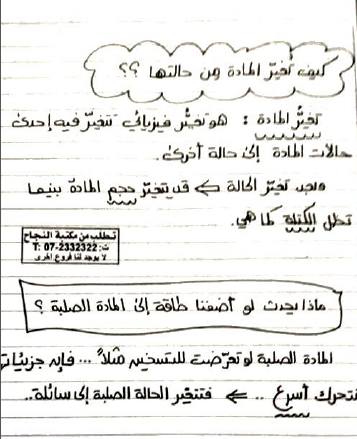 كيف تُغيّر المادة من حالتها ؟؟
تغيُّر المادة : هو تغيُّر فيزيائي تتغيّر فيه إحدى
حالات المادة إلى حالة أخرى.
وبعد تغيّر الحالة => قد يتغيّر حجم المادة بينما
تظل الكتلة كما هي.
تطلب من مكتبة النجاح
T: 07-2332322 :ت
لا يوجد لنا فروع اخرى
ماذا يحدث لو أضفنا طاقة إلى المادة الصلبة ؟
المادة الصلبة لو تعرّضت للتسخين مثلاً ... فإنه جزيئاتها
تتحرك أسرع .. => فتتغير الحالة الصلبة إلى سائلة..